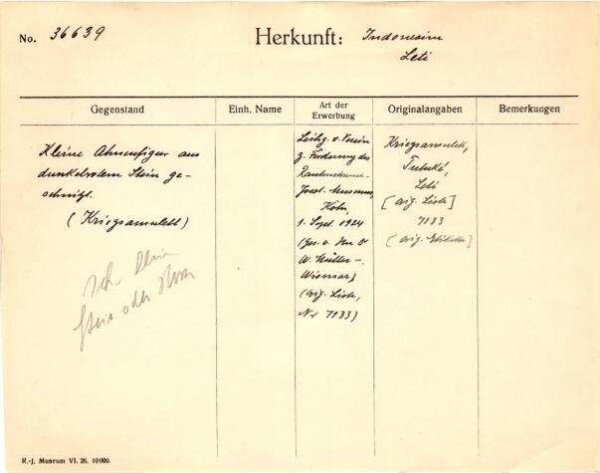 No. 36639
Herkunft: Indonesien
Leti
Gegenstand
Einh. Name
Art der
Erwerbung
Originalangaben
Bemerkungen
Kleine Ahnenfigur aus
dunkelrotem Stein ge-
schnitzt.
(Kriegsamulett)
Stein oder
Leihg. v. Verein
z. Förderung des
Rautenstrauch-
Joest-Museums,
Köln,
1. Sept. 1924
(Ges. v. Herr Dr
W. Müller-
Wismar)
(orig. Liste,
Nr 7133)
Kriegsamulett,
Leti
[orig. Liste]
7133
(orig. Etikette)
R.-J. Museum VI. 26. 10000.